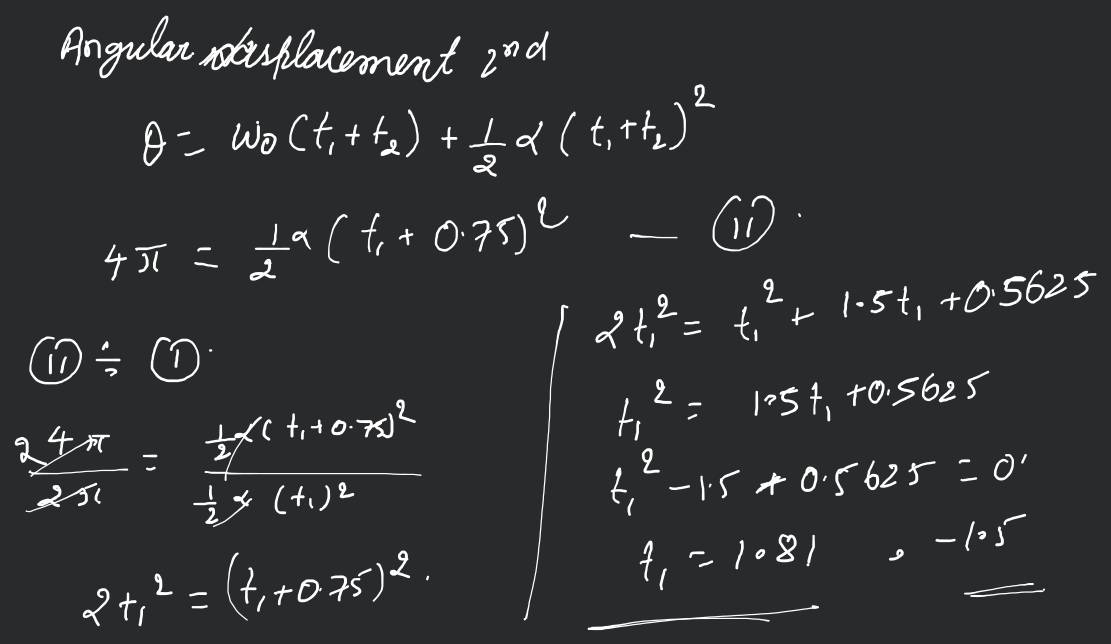 Angular displacement 2nd
θ = ω₀ (t₁ + t₂) + 1/2 α (t₁ + t₂)²
4π = 1/2 α (t₁ + 0.75)² — (II).
(II) ÷ (I).
2 4π / 2π = 1/2 α (t₁ + 0.75)² / 1/2 α (t₁)²
2t₁² = (t₁ + 0.75)².
2t₁² = t₁² + 1.5t₁ + 0.5625
t₁² = 1.5t₁ + 0.5625
t₁² - 1.5 + 0.5625 = 0
t₁ = 1.81 , -1.5